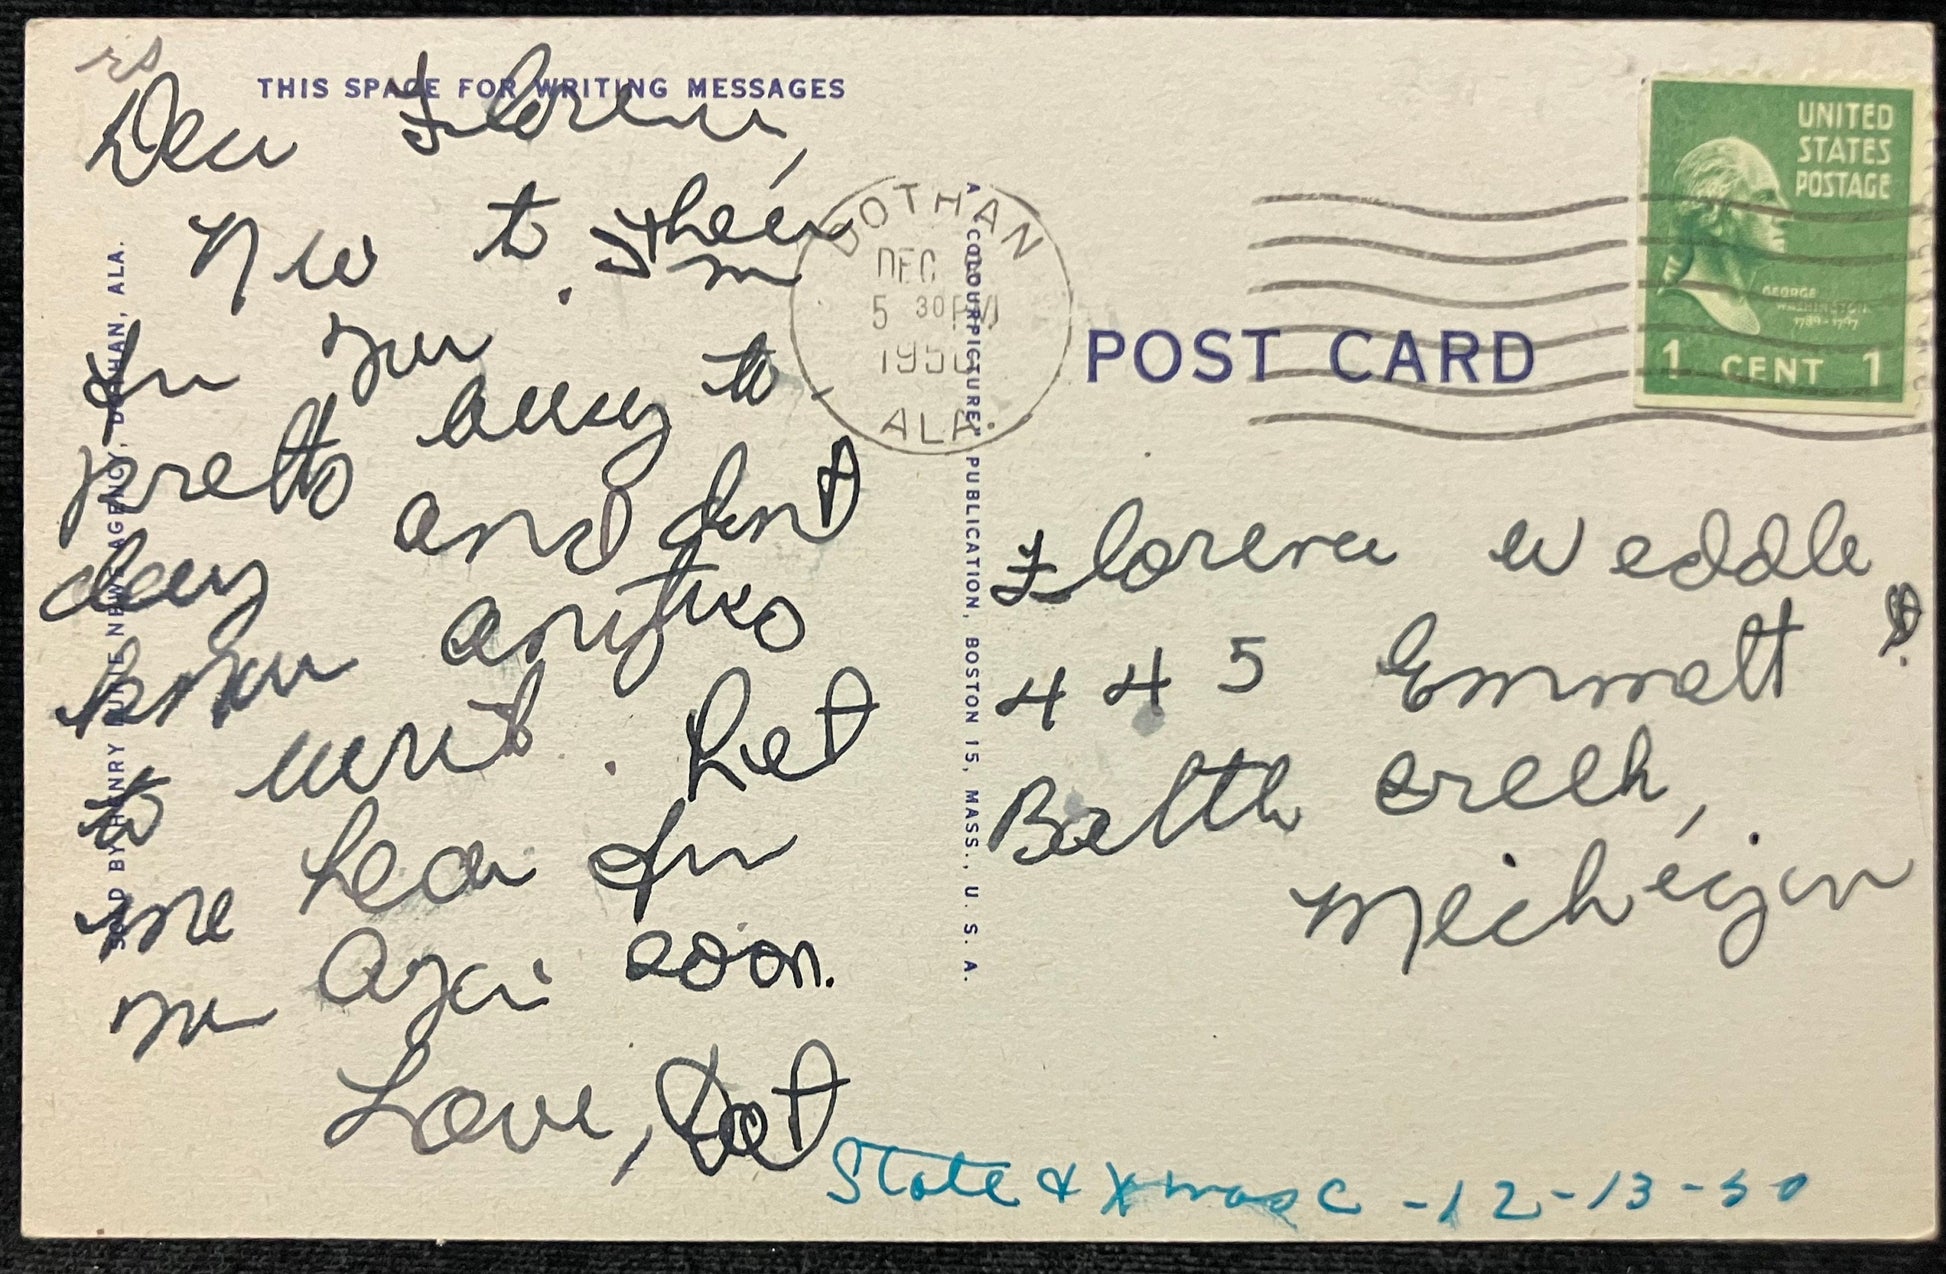 rs
THIS SPACE FOR WRITING MESSAGES
Dear Florence,
to
from you.
pretty busy to-
day and don't
know anything
to write. Let
me hear from
me again soon.
Love, Dot
SOLD BY HENRY NEWS AGENCY, DOTHAN, ALA.
A "COLOURPICTURE" PUBLICATION, BOSTON 15, MASS., U. S. A.
DOTHAN
DEC
5 30 PM
1950
ALA.
POST CARD
UNITED
STATES
POSTAGE
GEORGE
WASHINGTON
1789-1797
1 CENT 1
Florence Weddle
445 Emmett St.
Battle Creek,
Michigan
State & Xmas c -12-13-50